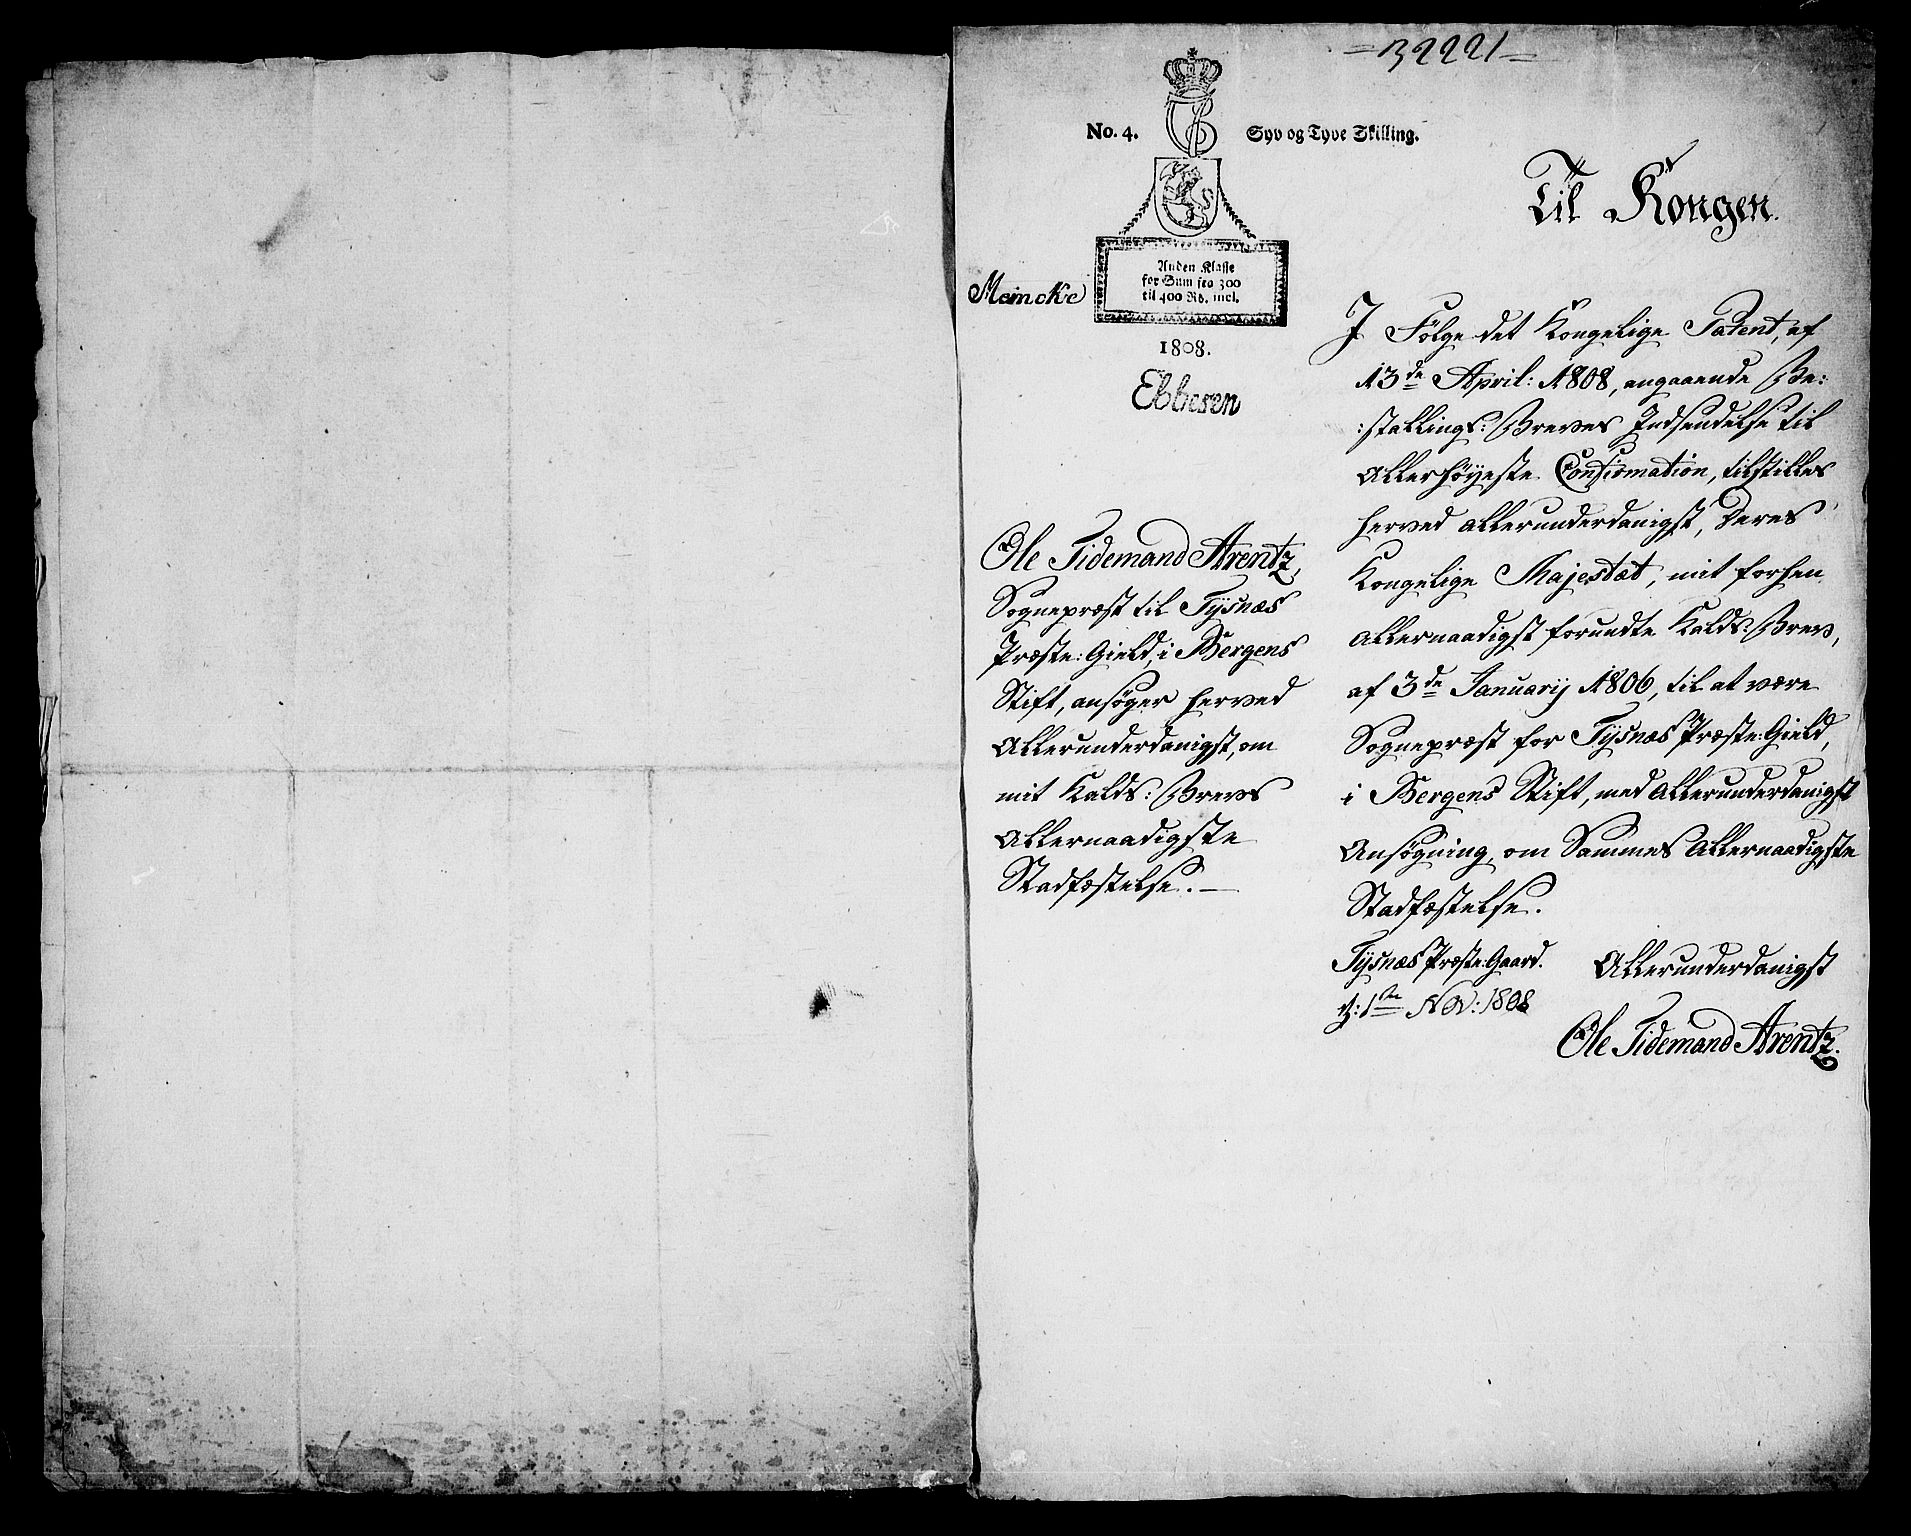 =32221=
No. 4. Syv og Tyve Skilling.
Anden Klasse
for Sum fra 300
til 400 Rd. incl.
Meincke
1808.
Ebbesen
Til Kongen.
Ole Tidemand Arentz,
Sognepræst til Tysnæs
Præste: Gield, i Bergens
Stift, ansøger herved
Allerunderdanigst, om
mit Kalds: Brevs
Allernaadigste
Stadfæstelse. —
I Følge det Kongelige Patent, af
13de April: 1808, angaaende Be:
:stallings: Breves Indsendelse til
Allerhøyeste Confirmation, tilstilles
herved allerunderdanigst, Deres
Kongelige Majestæt, mit forhen
Allernaadigst forundte Kalds: Brev,
af 3de Januarij 1806, til at være
Sognepræst for Tysnæs Præste: Gield,
i Bergens Stift, med Allerunderdanigst
Ansøgning, om Sammes Allernaadigste
Stadfæstelse.
Tysnæs Præste: Gaard.
d: 1ste Nov: 1808
Allerunderdanigst
Ole Tidemand Arentz.